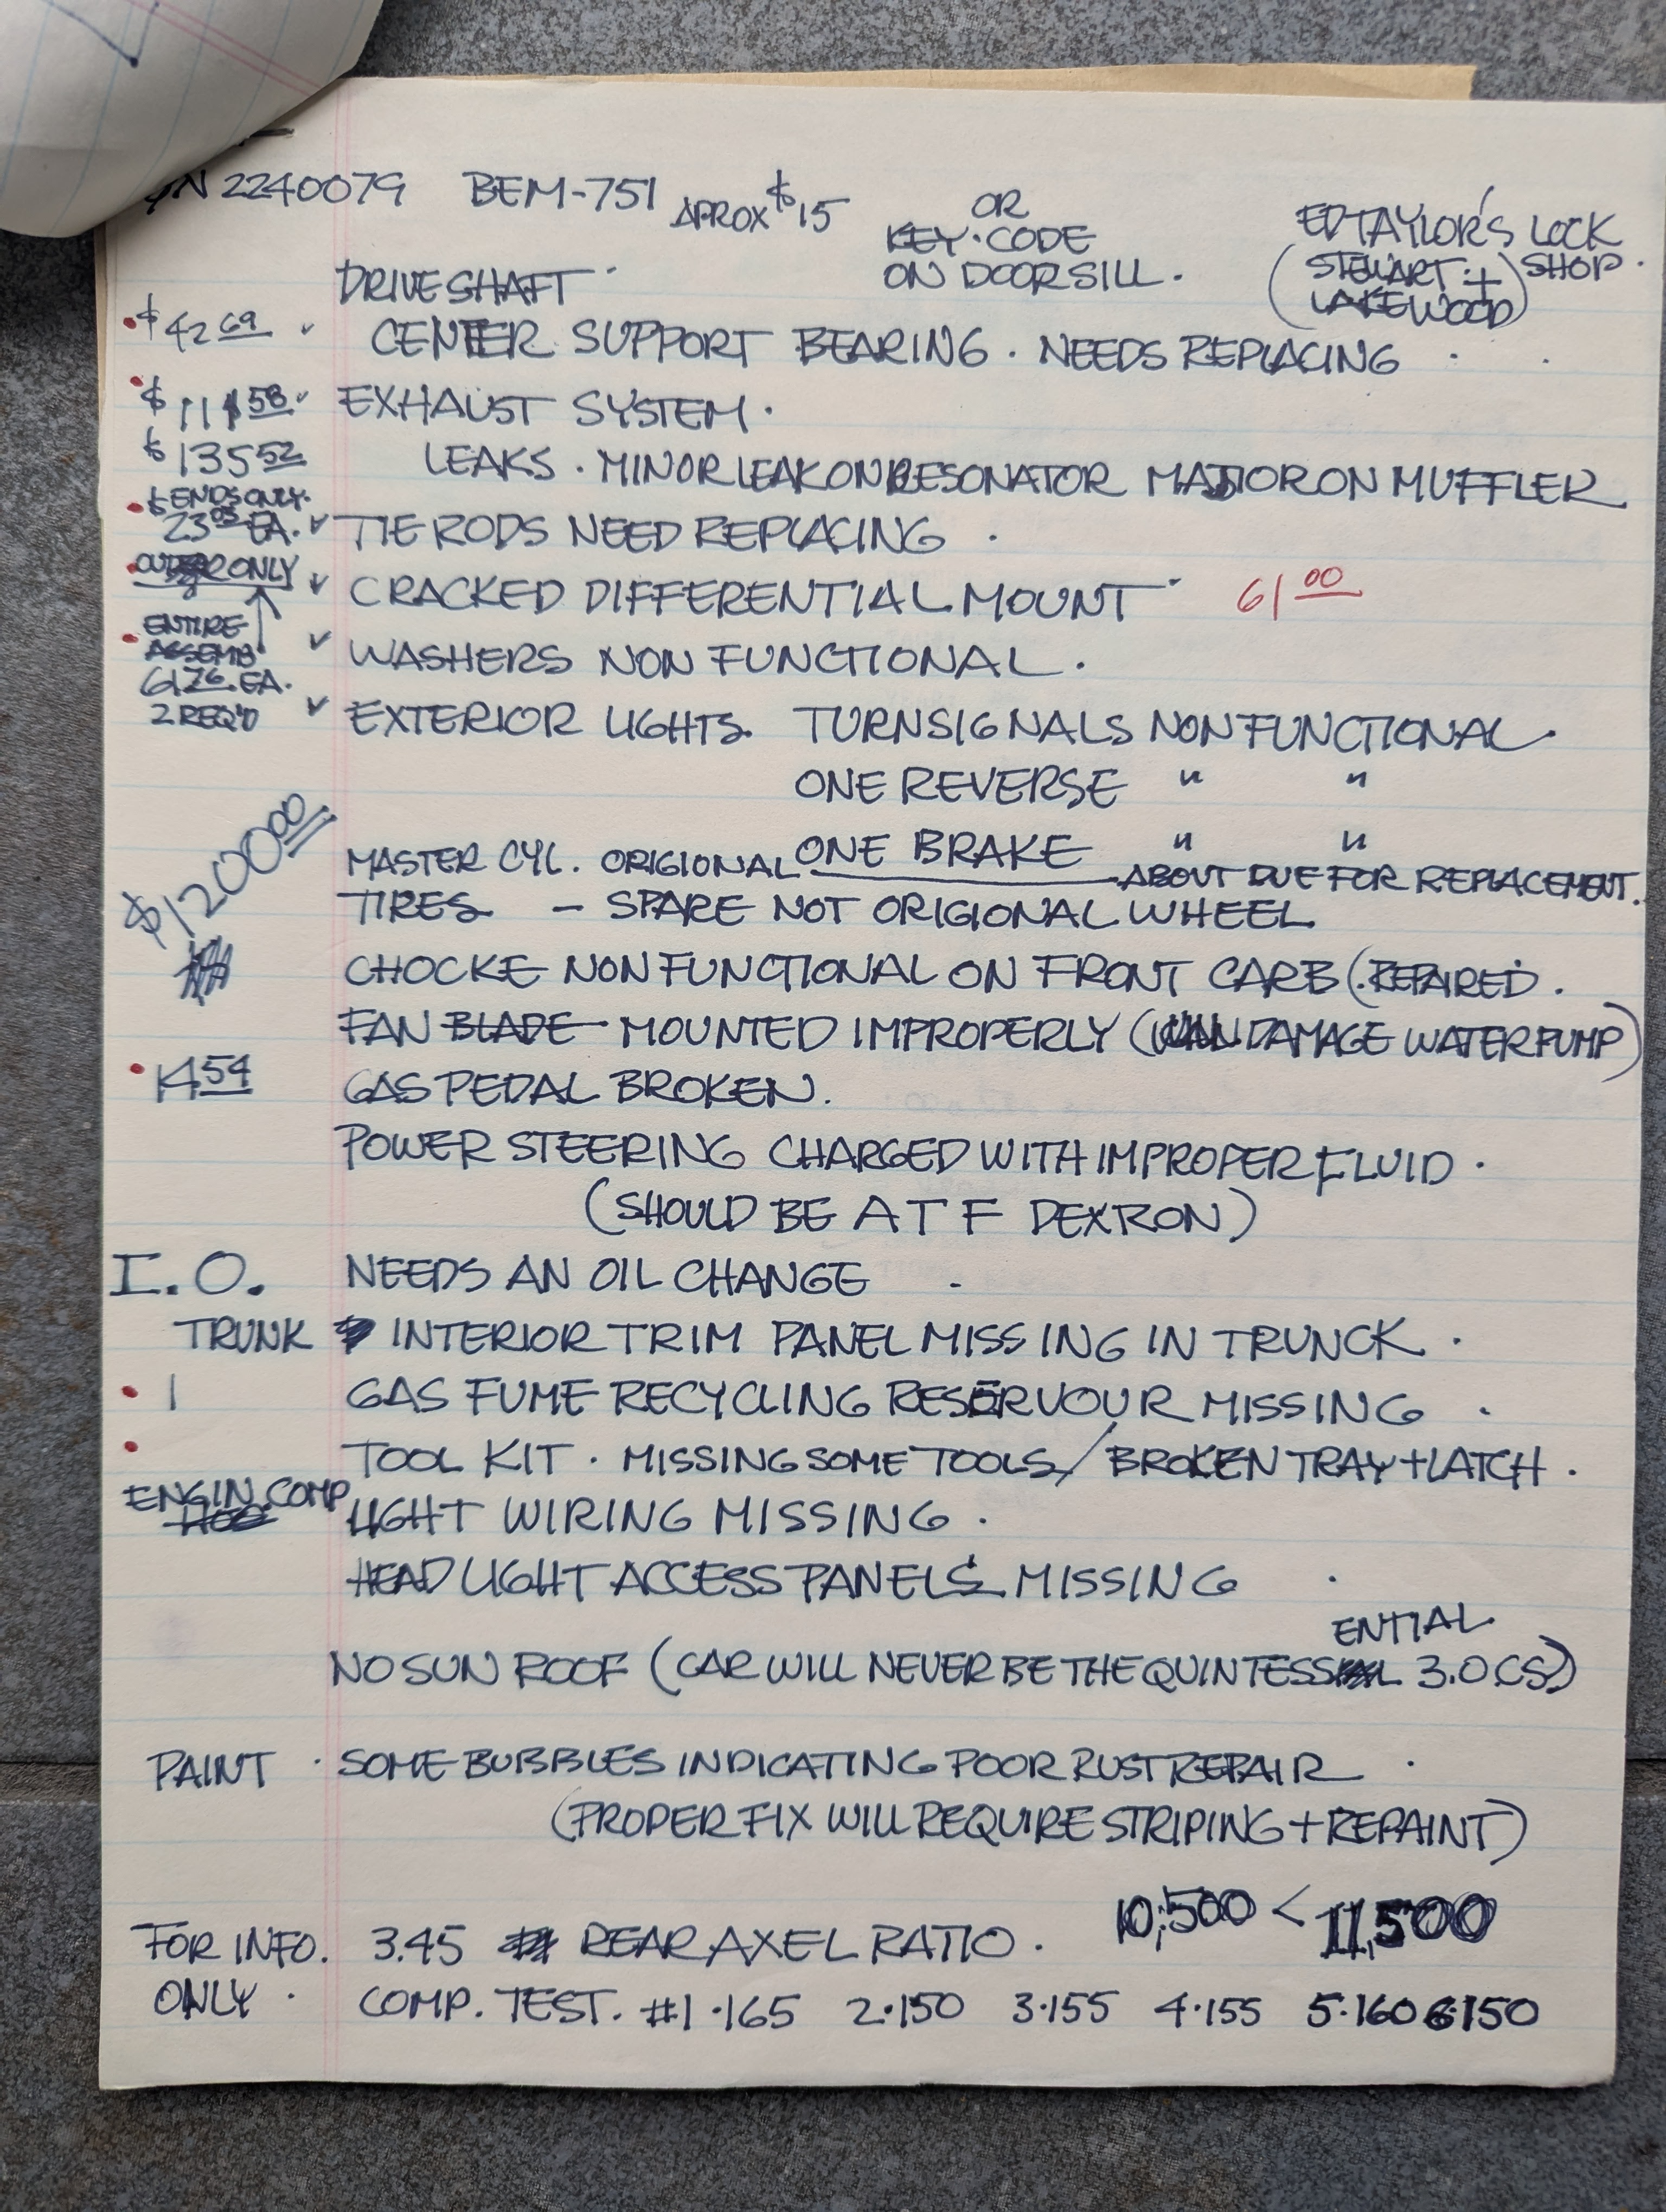 N 2240079 BEM-751 APROX $15
OR
KEY·CODE
ON DOORSILL.
ED TAYLOR'S LOCK
(STEWART + SHOP.
LAKEWOOD)
DRIVESHAFT
$42 69 ✓ CENTER SUPPORT BEARING. NEEDS REPLACING
$ 58 ✓ EXHAUST SYSTEM.
$135 52 LEAKS. MINOR LEAK ON RESONATOR MAJOR ON MUFFLER
$ ENDS ONLY.
23 05 EA. ✓ TIE RODS NEED REPLACING.
OUTER ONLY ✓ CRACKED DIFFERENTIAL MOUNT 61 00
ENTIRE
ASSEMB ✓ WASHERS NON FUNCTIONAL.
61 76 EA.
2 REQ'D ✓ EXTERIOR LIGHTS. TURNSIGNALS NON FUNCTIONAL.
ONE REVERSE " "
$1200 00
ONE BRAKE " "
MASTER CYL. ORIGIONAL ABOUT DUE FOR REPLACEMENT.
TIRES - SPARE NOT ORIGIONAL WHEEL
CHOCKE NON FUNCTIONAL ON FRONT CARB (REPAIRED.
FAN BLADE MOUNTED IMPROPERLY (CAN DAMAGE WATER PUMP)
14 54 GAS PEDAL BROKEN.
POWER STEERING CHARGED WITH IMPROPER FLUID.
(SHOULD BE ATF DEXTRON)
I.O. NEEDS AN OIL CHANGE
TRUNK INTERIOR TRIM PANEL MISSING IN TRUNCK.
1 GAS FUME RECYCLING RESERVOUR MISSING.
TOOL KIT. MISSING SOME TOOLS/BROKEN TRAY + LATCH.
ENGIN COMP LIGHT WIRING MISSING.
HEAD LIGHT ACCESS PANELS MISSING
ENTIAL
NO SUN ROOF (CAR WILL NEVER BE THE QUINTESS 3.0 CS)
PAINT · SOME BUBBLES INDICATING POOR RUST REPAIR
(PROPER FIX WILL REQUIRE STRIPING + REPAINT)
10,500 < 11,500
FOR INFO. 3.45 REAR AXEL RATIO.
ONLY. COMP. TEST. #1·165 2·150 3·155 4·155 5·160 6·150